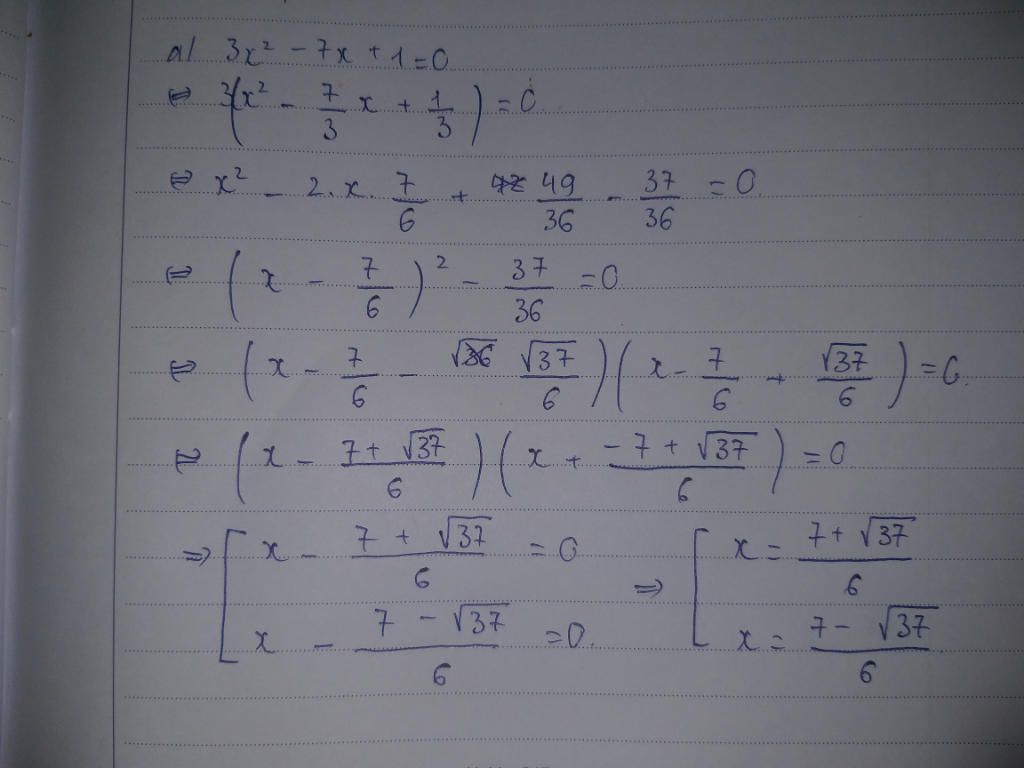 a/ 3x² - 7x + 1 = 0
⇔ 3(x² - 7/3 x + 1/3) = 0
⇔ x² - 2.x. 7/6 + 49/36 - 37/36 = 0
⇔ (x - 7/6)² - 37/36 = 0
⇔ (x - 7/6 - √37/6)(x - 7/6 + √37/6) = 0
⇔ (x - (7 + √37)/6)(x + (-7 + √37)/6) = 0
⇒ [ x - (7 + √37)/6 = 0 ⇒ [ x = (7 + √37)/6
x - (7 - √37)/6 = 0. x = (7 - √37)/6